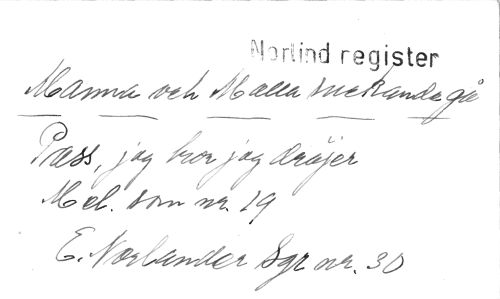 Norlind register
Mamma och Malla suckande gå
Pass, jag tror jag dröjer
Mel. som nr. 19
E. Norlander Sgr nr. 30